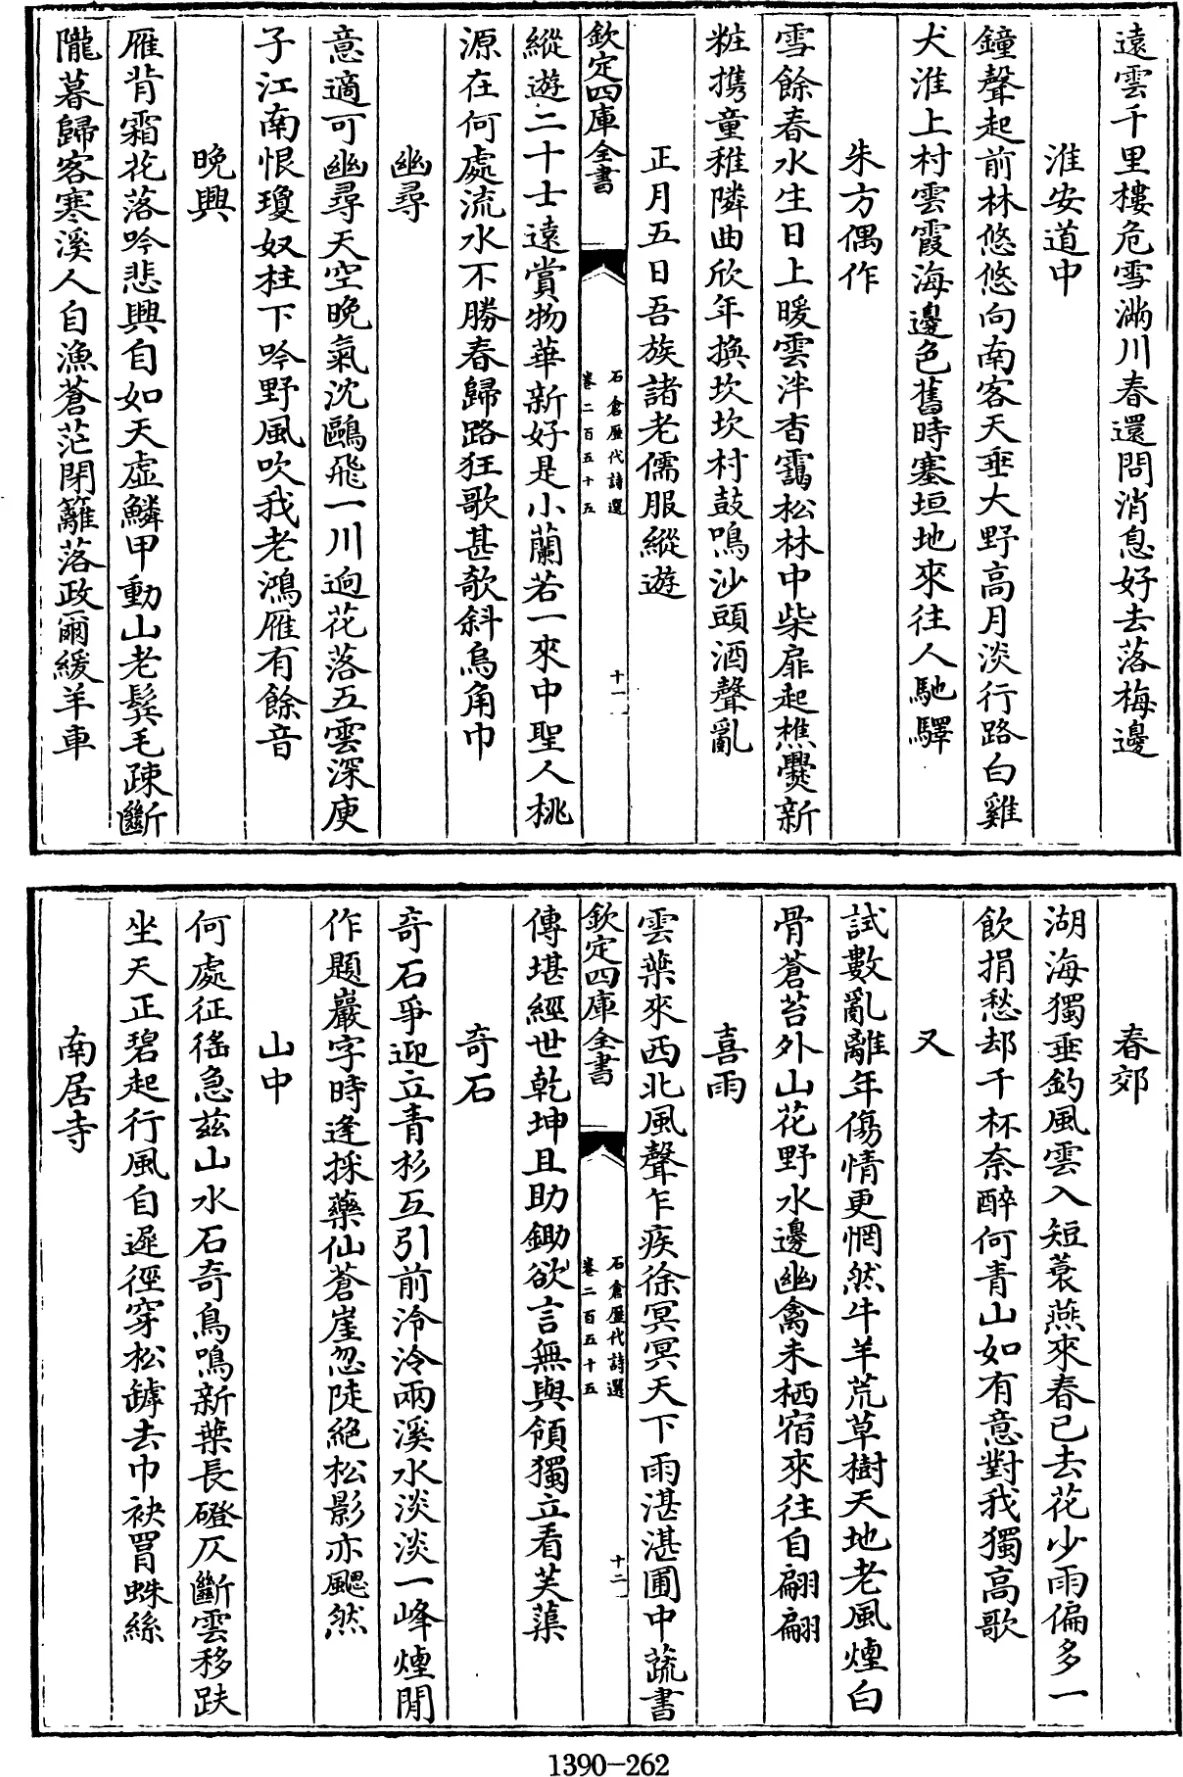 遠雲千里樓危雪滿川春還問消息好去落梅邊
淮安道中
鐘聲起前林悠悠向南客天垂大野高月淡行路白雞
犬淮上村雲霞海邊色舊時塞垣地來往人馳驛
朱方偶作
雪餘春水生日上暖雲泮杳靄松林中柴扉起樵爨新
粧携童稚隣曲欣年換坎坎村鼓鳴沙頭酒聲亂
正月五日吾族諸老儒服縱遊
欽定四庫全書
石倉歷代詩選
卷二百五十五
十一
縱遊二十士遠賞物華新好是小蘭若一來中聖人桃
源在何處流水不勝春歸路狂歌甚欹斜烏角巾
幽尋
意適可幽尋天空晚氣沈鷗飛一川逈花落五雲深庾
子江南恨瓊奴柱下吟野風吹我老鴻雁有餘音
晚興
雁背霜花落吟悲興自如天虛鱗甲動山老鬂毛疎斷
隴暮歸客寒溪人自漁蒼茫閉籬落政爾緩羊車
春郊
湖海獨垂釣風雲入短蓑燕來春已去花少雨偏多一
飲捐愁却千杯奈醉何青山如有意對我獨高歌
又
試數亂離年傷情更惘然牛羊荒草樹天地老風煙白
骨蒼苔外山花野水邊幽禽未栖宿來往自翩翩
喜雨
雲葉來西北風聲乍疾徐冥冥天下雨湛湛圃中蔬書
欽定四庫全書
石倉歷代詩選
卷二百五十五
十二
傳堪經世乾坤且助鋤欲言無與領獨立看芙蕖
奇石
奇石爭迎立青杉互引前泠泠兩溪水淡淡一峰煙閒
作題巖字時逢採藥仙蒼崖忽陡絶松影亦颸然
山中
何處征徭急茲山水石奇鳥鳴新葉長磴仄斷雲移趺
坐天正碧起行風自遲徑穿松罅去巾袂罥蛛絲
南居寺
1390-262